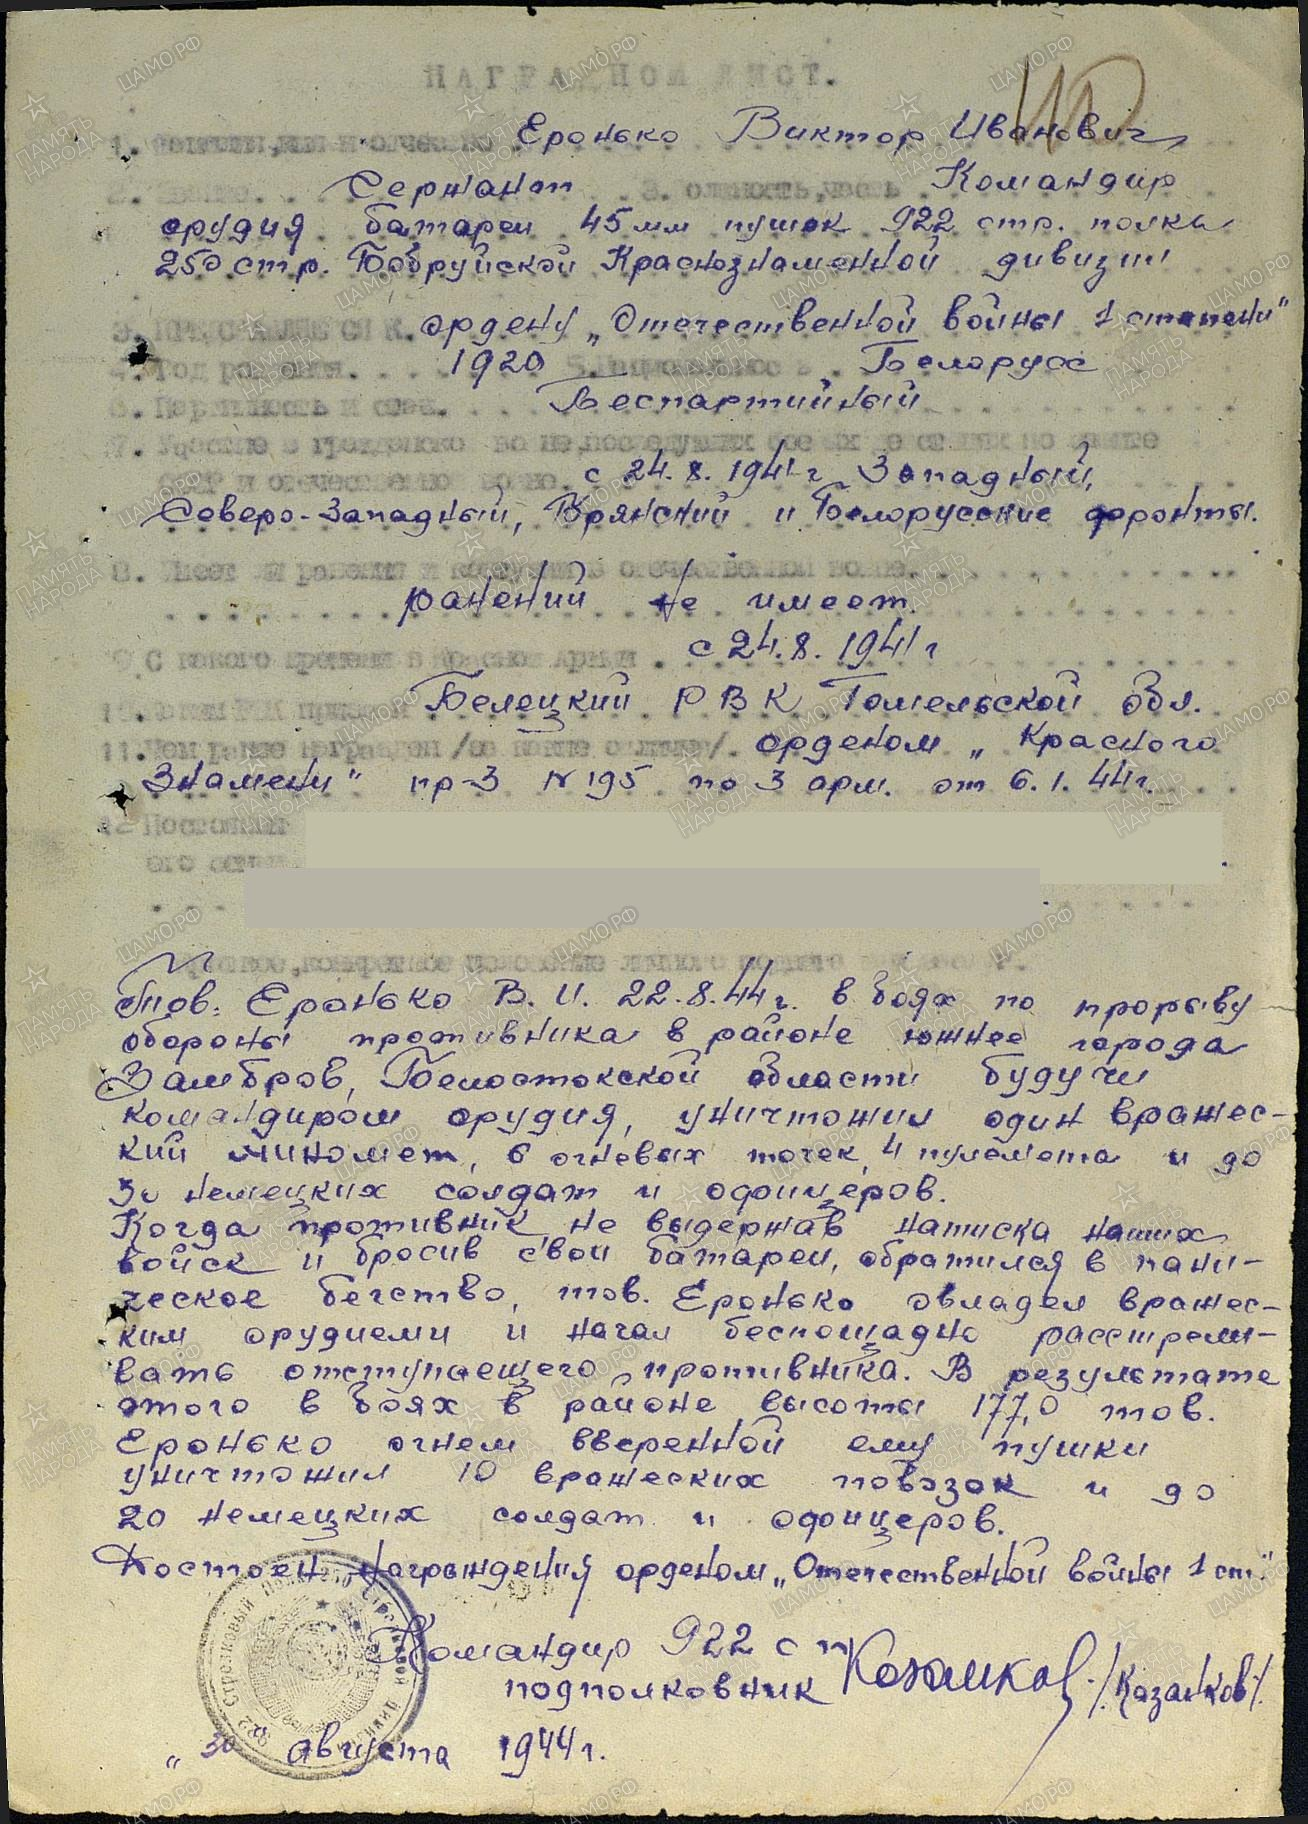 НАГРАДНОЙ ЛИСТ.
1. Фамилия, имя и отчество Еронько Виктор Иванович
2. Звание. Сержант 3. Должность, часть Командир
орудия батареи 45 мм пушек 922 стр. полка
250 стр. Бобруйской Краснознаменной дивизии
ордену „Отечественной войны 1 степени"
4. Год рождения. 1920 5. Белорусс
6. Партийность и стаж. Беспартийный
7. Участие в гражданской войне, последующих боевых действиях по защите
СССР и отечественной войне. с 24.8.1941 г Западный,
Северо-Западный, Брянский и Белорусские фронты.
8. Имеет ли ранения и контузии в отечественной войне.
ранений не имеет.
9 С какого времени в Красной Армии с 24.8.1941 г
10. Каким РВК призван Белецкий РВК Гомельской обл.
11. Чем ранее награжден /за какие отличия/. орденом „Красного
Знамени" пр-з №195 по 3 арм. от 6.1.44г.
12 Постоянный
его семьи
Тов. Еронько В.И. 22.8.44г. в боях по прорыву
обороны противника в районе южнее города
Замбров, Белостокской области будучи
командиром орудия, уничтожил один вражес-
кий миномет, 6 огневых точек, 4 пулемета и до
30 немецких солдат и офицеров.
Когда противник, не выдержав натиска наших
войск и бросив свои батареи, обратился в пани-
ческое бегство, тов. Еронько овладел вражес-
ким орудием и начал беспощадно расстрели-
вать отступаещего противника. В результате
этого в боях в районе высоты 177,0 тов.
Еронько огнем вверенной ему пушки
уничтожил 10 вражеских повозок и до
20 немецких солдат и офицеров.
Достоен награждения орденом „Отечественной войны 1 ст."
Командир 922 сп
подполковник /Казанков/.
„30 августа 1944 г.
922 Стрелковый Полк 250 Стрелковой Дивизии
ПАМЯТЬ НАРОДА
ЦАМО.РФ